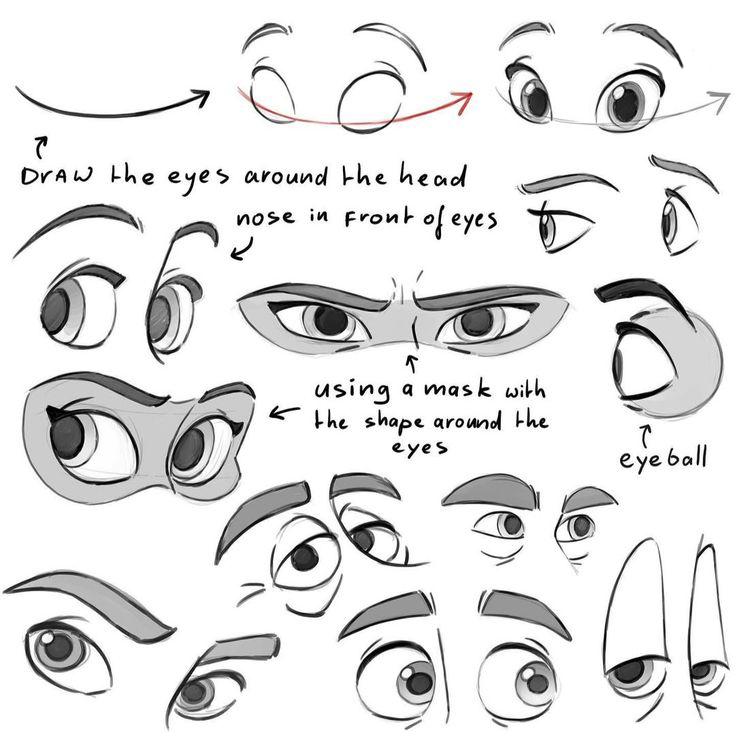 Draw the eyes around the head
nose in front of eyes
using a mask with
the shape around the
eyes
eyeball